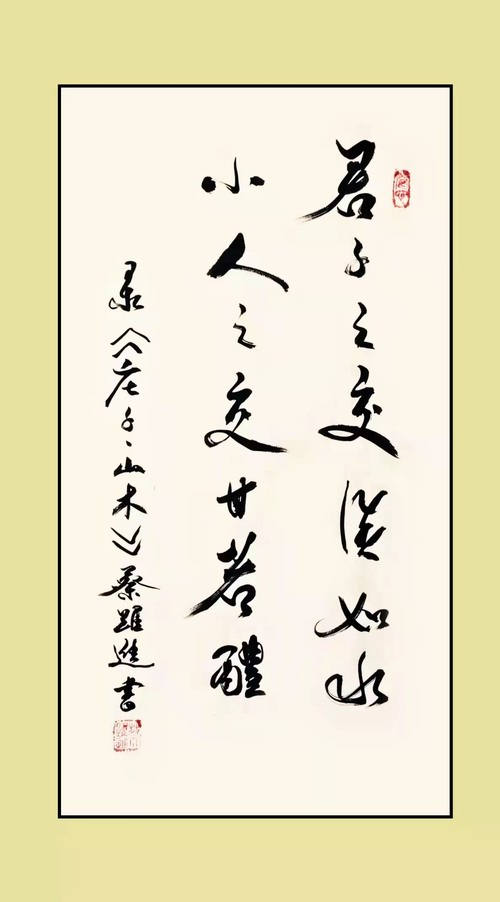 君子之交淡如水
小人之交甘若醴
录《庄子·山木》蔡躍進書